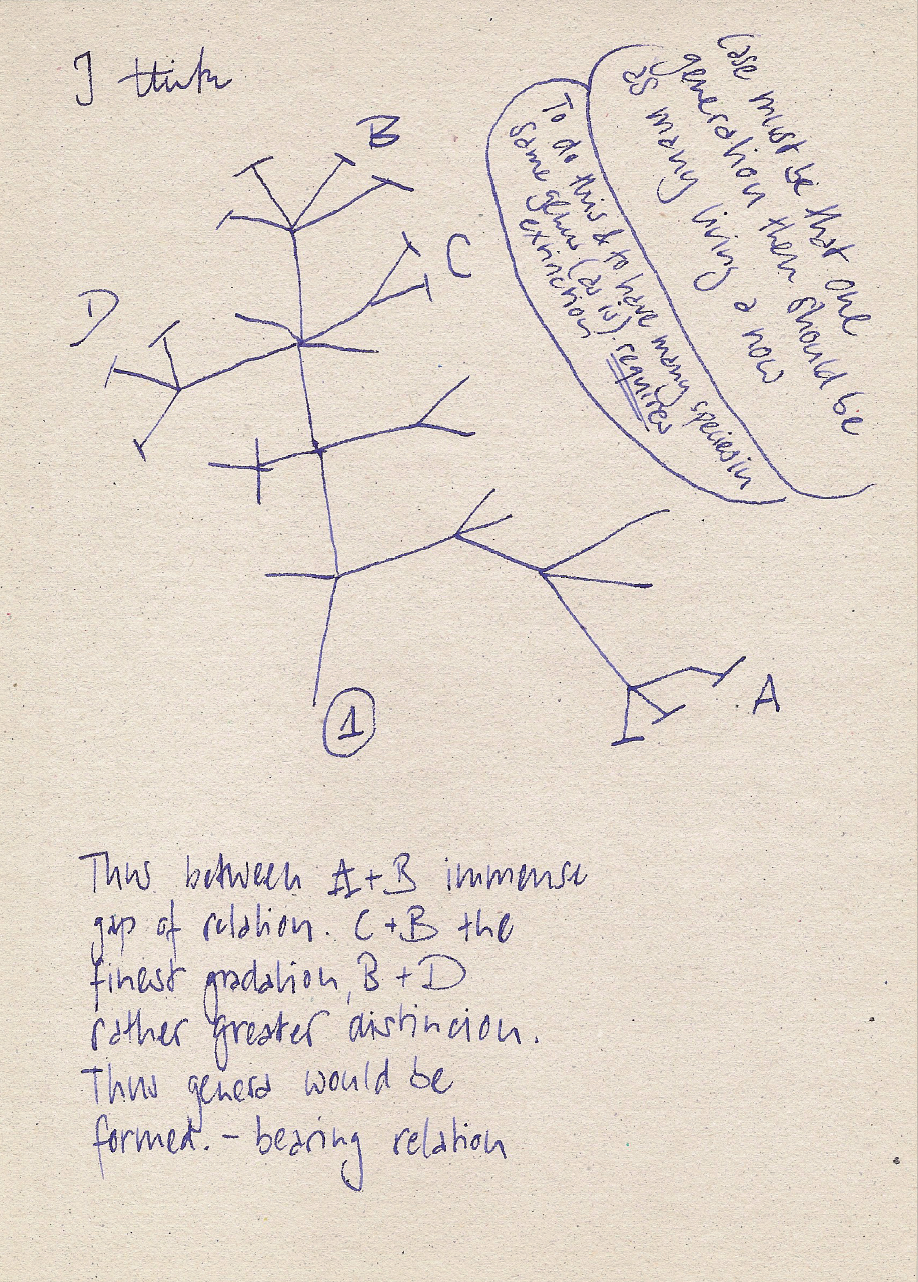 I think
case must be that one
generation then should be
as many living a now
To do this & to have many species in
same genus (as is). requires
extinction
B
C
D
A
1
Thus between A + B immense
gap of relation. C + B the
finest gradation, B + D
rather greater distincion.
Thus genera would be
formed. – bearing relation